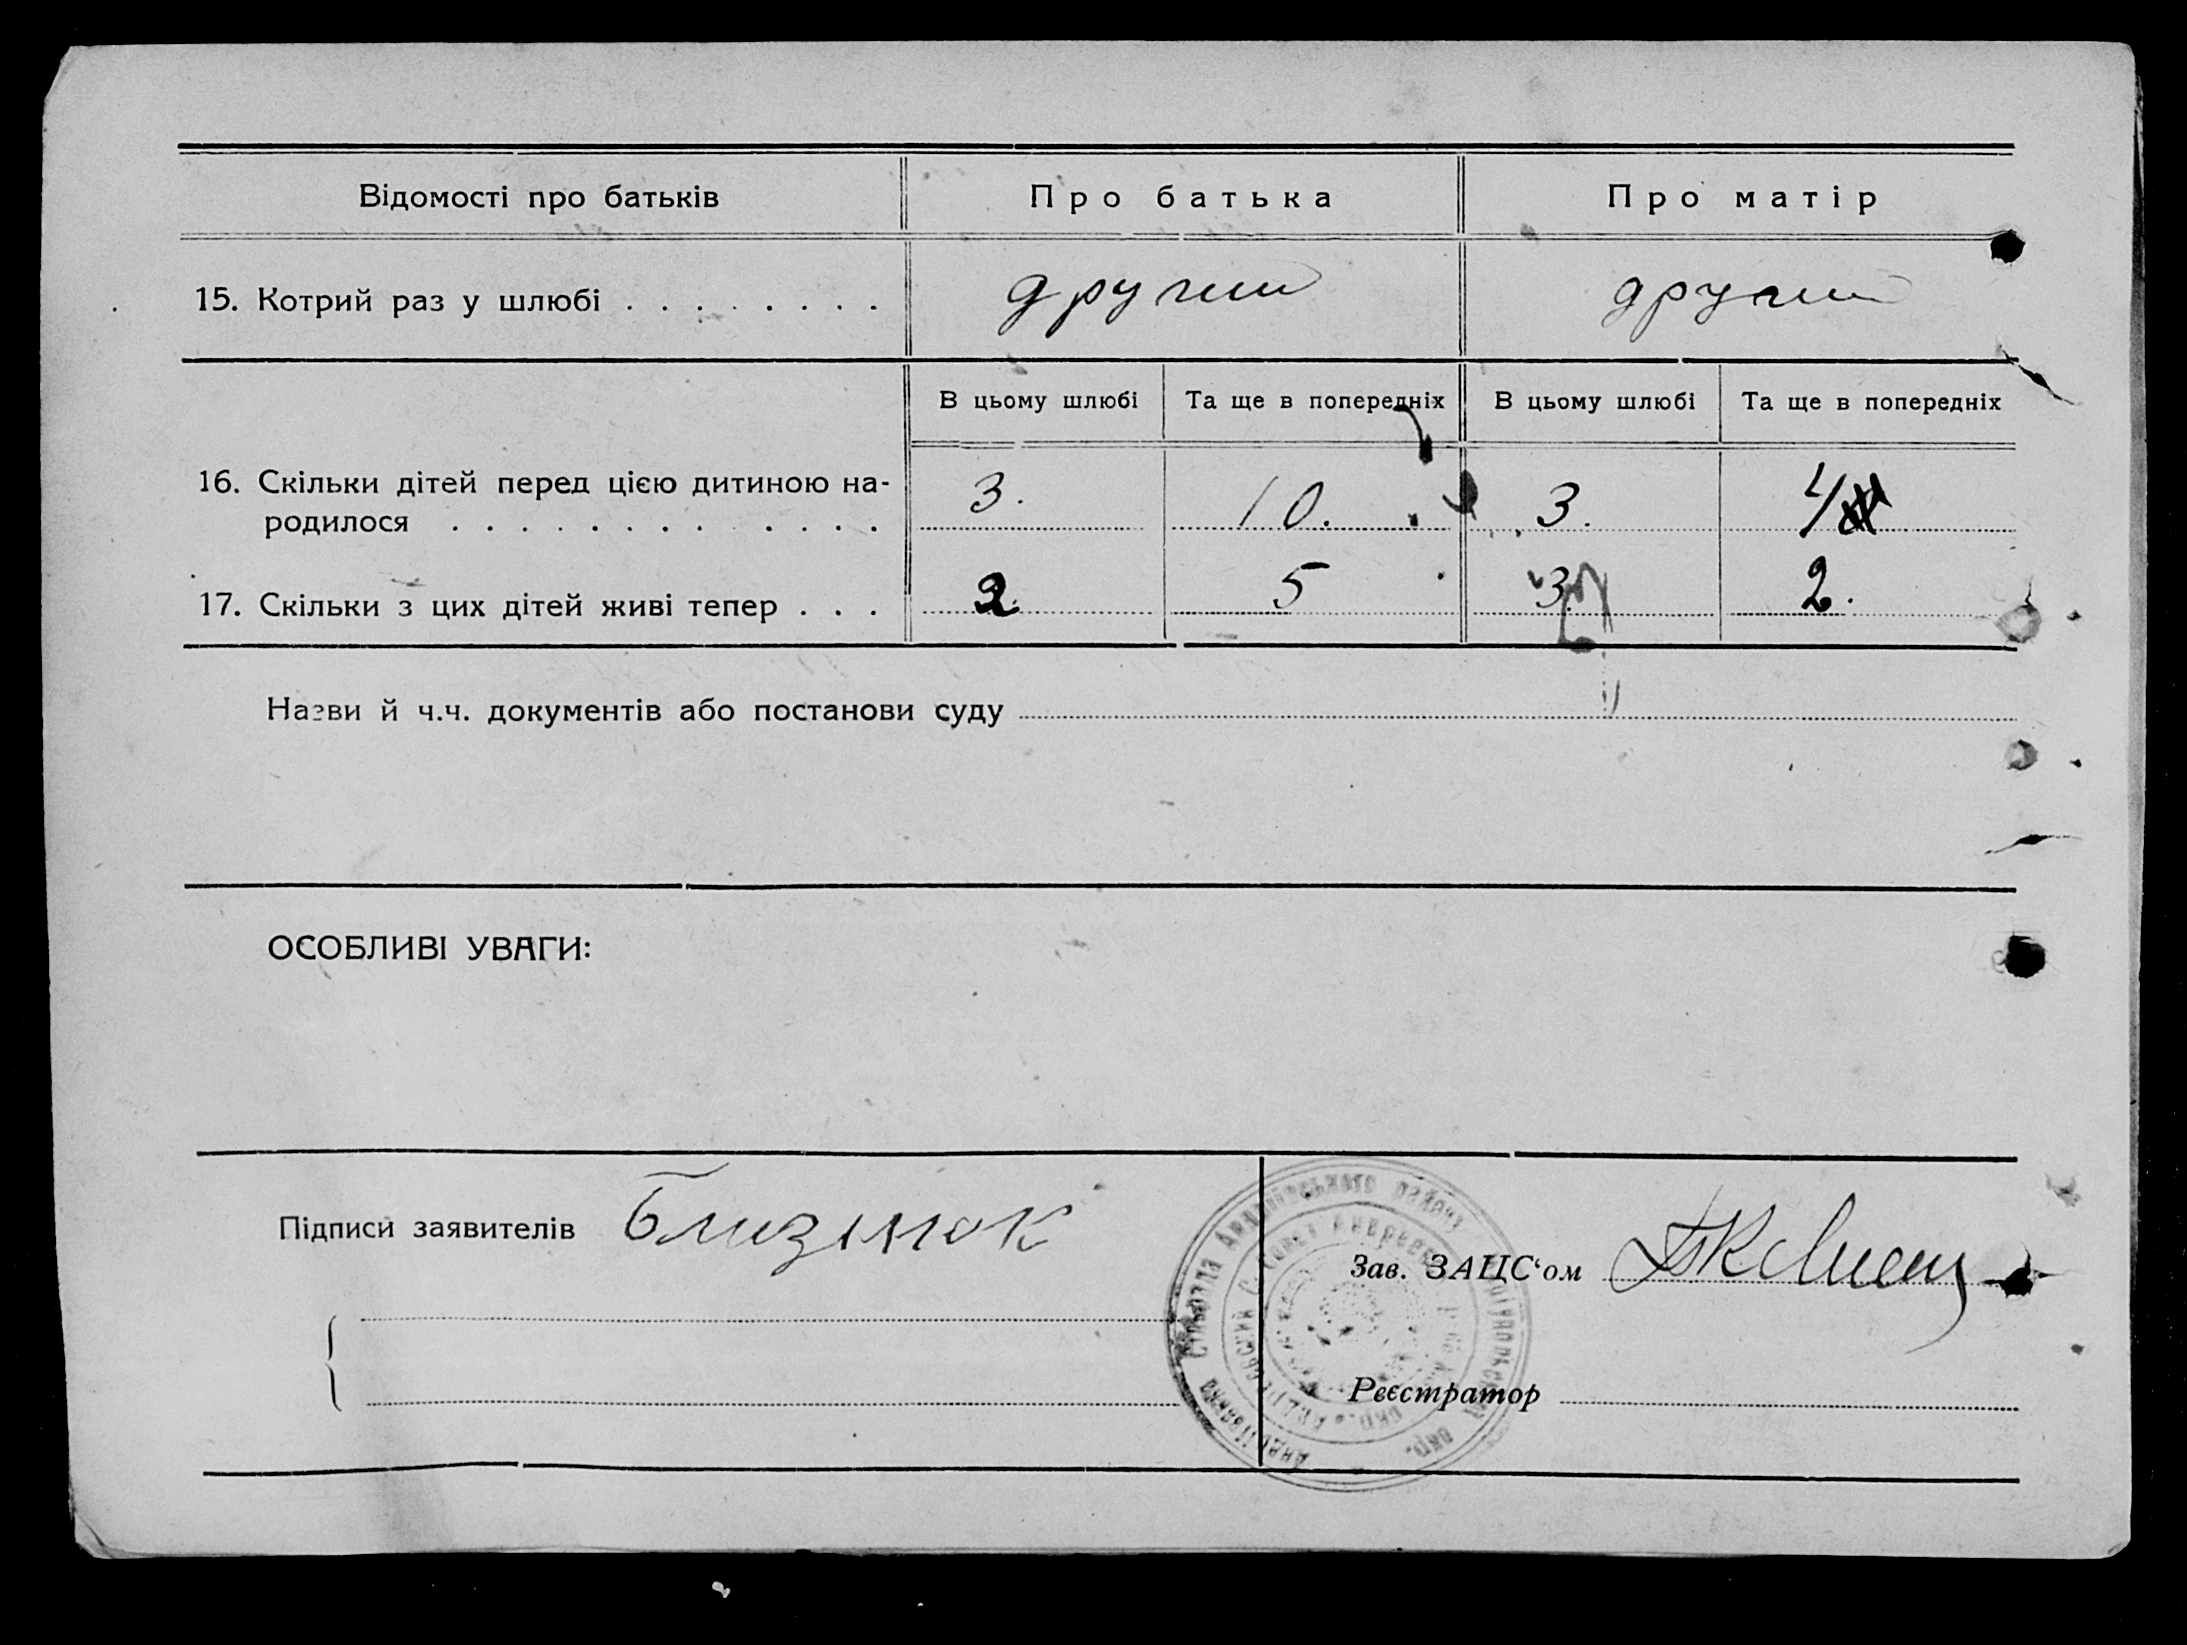 Відомості про батьків
Про батька
Про матір
15. Котрий раз у шлюбі . . . . . . . .
другий
другий
В цьому шлюбі
Та ще в попередніх
В цьому шлюбі
Та ще в попередніх
16. Скільки дітей перед цією дитиною на-
родилося . . . . . . . . . . . .
3.
10.
3.
4
17. Скільки з цих дітей живі тепер . . .
2
5
3.
2.
Назви й ч.ч. документів або постанови суду
ОСОБЛИВІ УВАГИ:
Підписи заявителів
Близнюк
Зав. ЗАЦС‘ом
Реєстратор
Андріївська Сільрада Андріївського району окр.